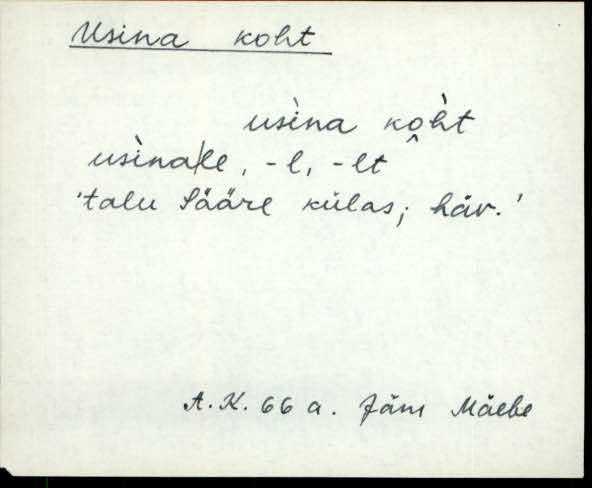 Usina koht
usìna koh̀t
usìna|le, -l, -lt
'talu Sääre külas; häv.'
A. K. 66 a. Jäm Mäebe